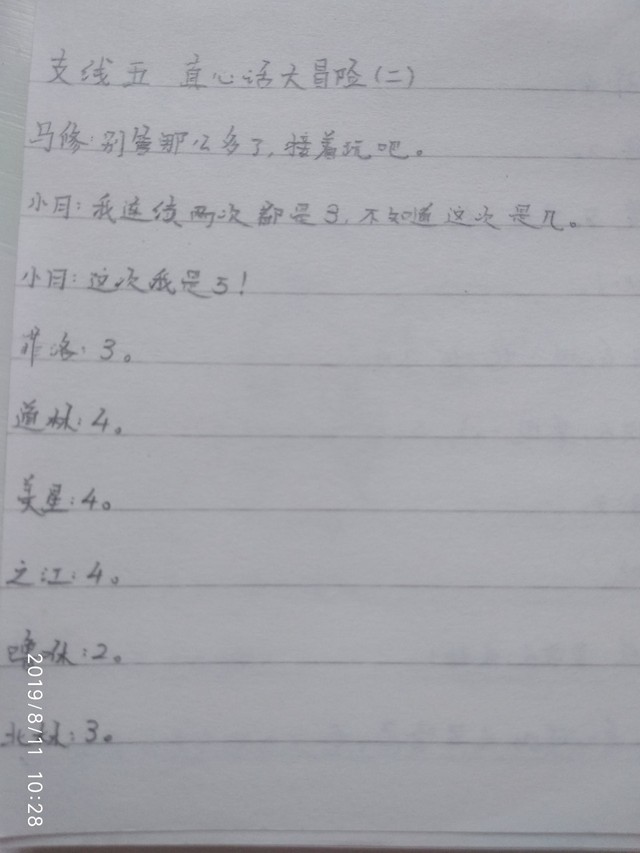 支线五 真心话大冒险(二)
马修:别管那么多了,接着玩吧。
小月:我连续两次都是3,不知道这次是几。
小月:这次我是5!
菲洛:3。
道林:4。
美星:4。
之江:4。
:2。
北林:3。
2019/8/11 10:28